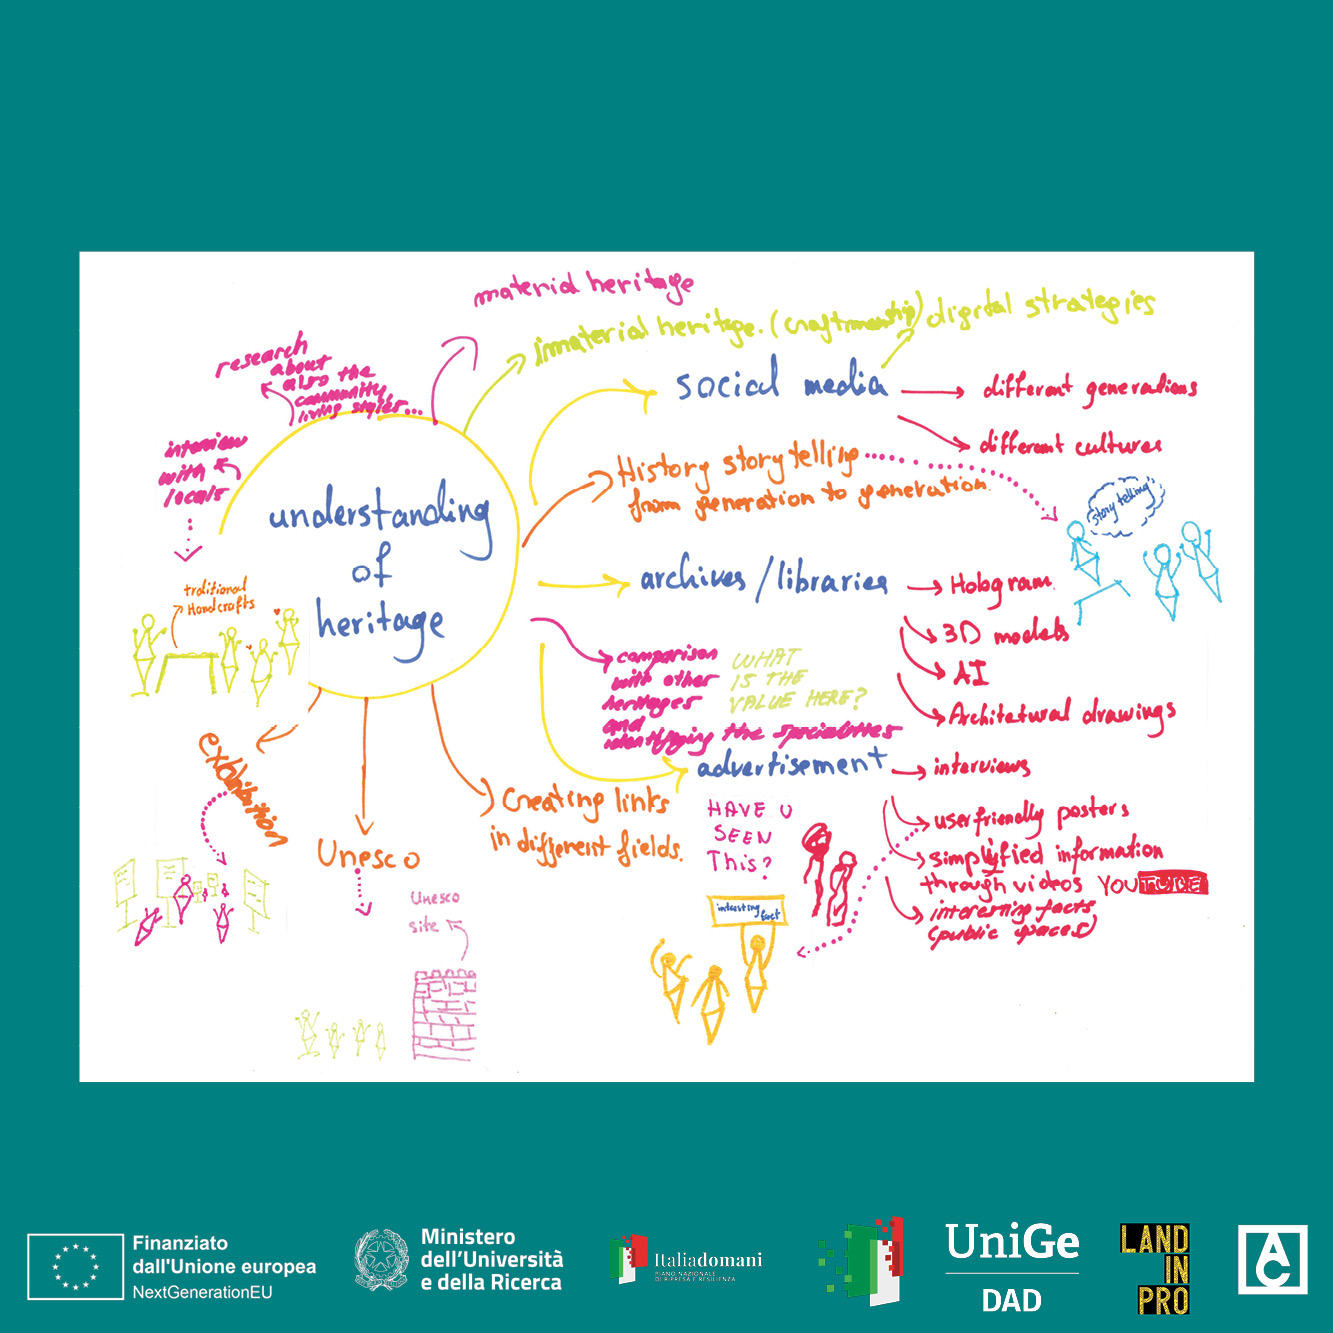 material heritage
immaterial heritage. (craftmanship) digital strategies
research
about
also the
community
living styles...
interview
with
locals
traditional
Handcrafts
understanding
of
heritage
social media
different generations
different cultures
History storytelling
from generation to generation.
story telling
archives / libraries
Hologram.
3D models
AI
Architatural drawings
comparison
with other
heritages
and
identifying the specialities
WHAT
IS THE
VALUE HERE?
advertisement
interviews
userfriendly posters
simplyfied information
through videos YOUTUBE
interesting facts
(public spaces)
HAVE U
SEEN
This?
interesting
fact
Creating links
in different fields.
Unesco
Unesco
site
exhibition
Finanziato
dall'Unione europea
NextGenerationEU
Ministero
dell'Università
e della Ricerca
Italiadomani
PIANO NAZIONALE
DI RIPRESA E RESILIENZA
UniGe
DAD
LAND
IN
PRO
AC